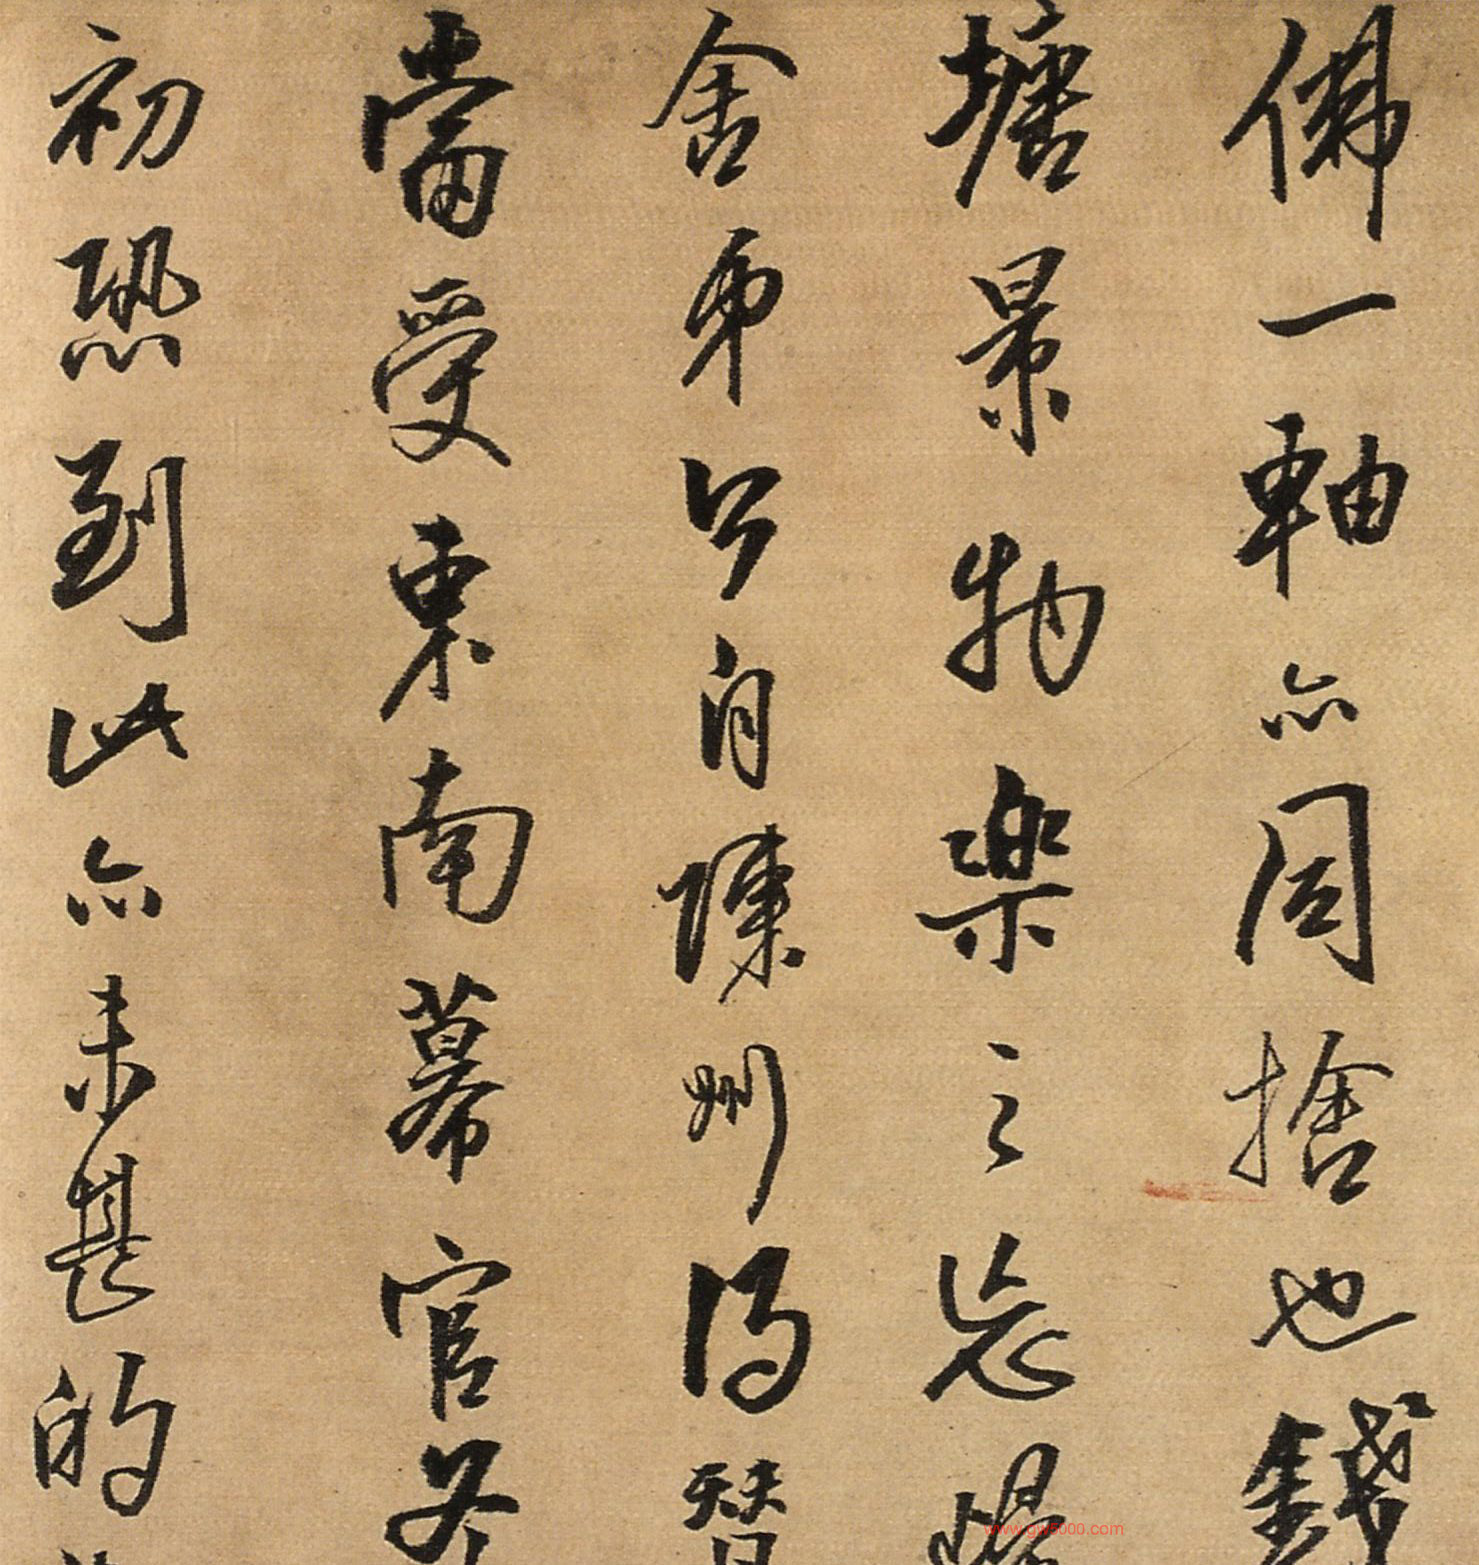 佛一軸亦同捨也錢
塘景物樂之忘
舍弟公自陳州得替
當受東南幕官冬
初恐到此亦未甚的
www.gw5000.com